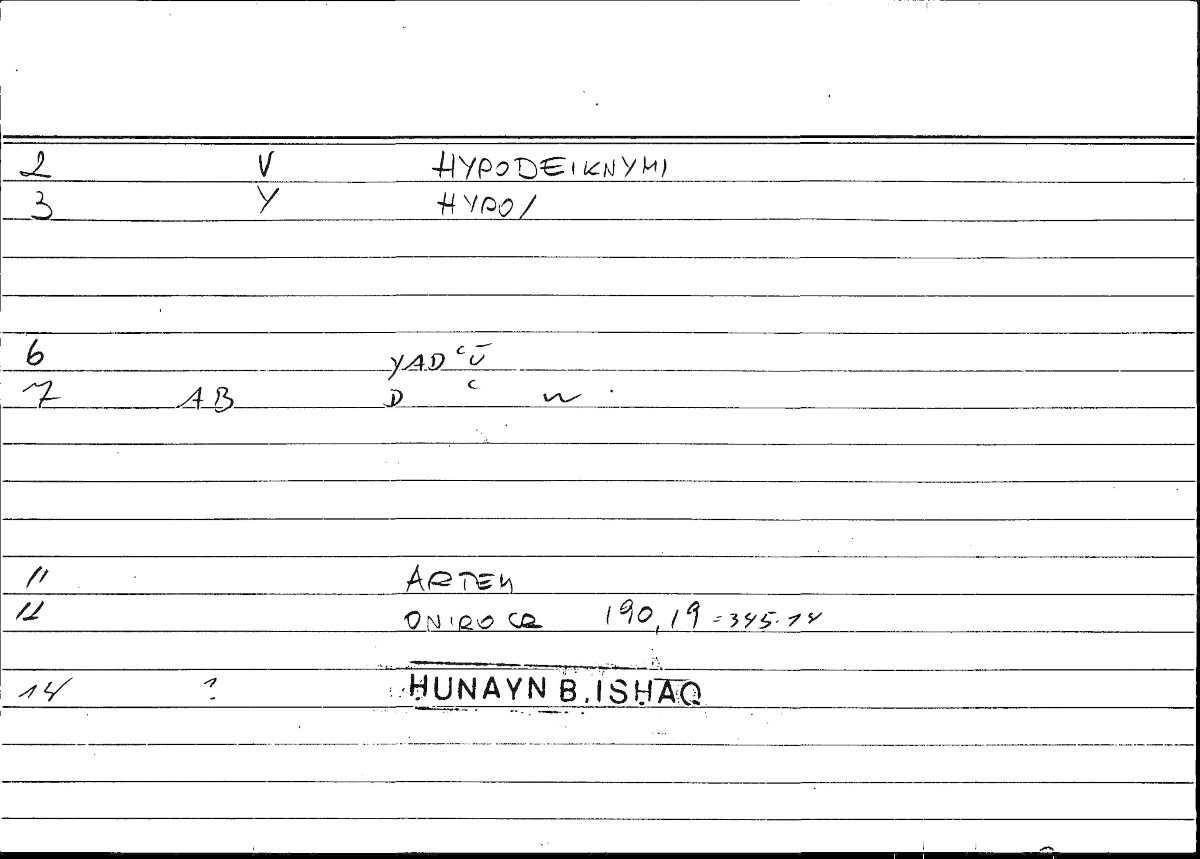 2 V HYPODEIKNYMI
3 Y HYPO/
6 YADʿŪ
7 AB D ʿ W
11 ARTEM
12 ONIROCR 190,19 = 345.14
14 ? HUNAYN B. ISHAQ